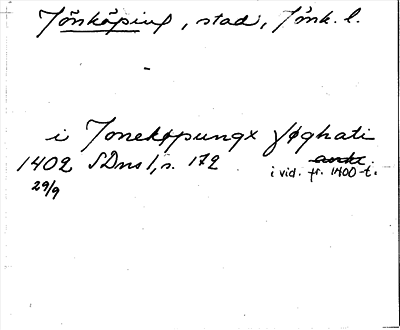 Jönköping, stad, Jönk. l.
i Jonekøpungx føghati
1402 SDns 1, s. 172
29/9 i vid. fr. 1400-t.